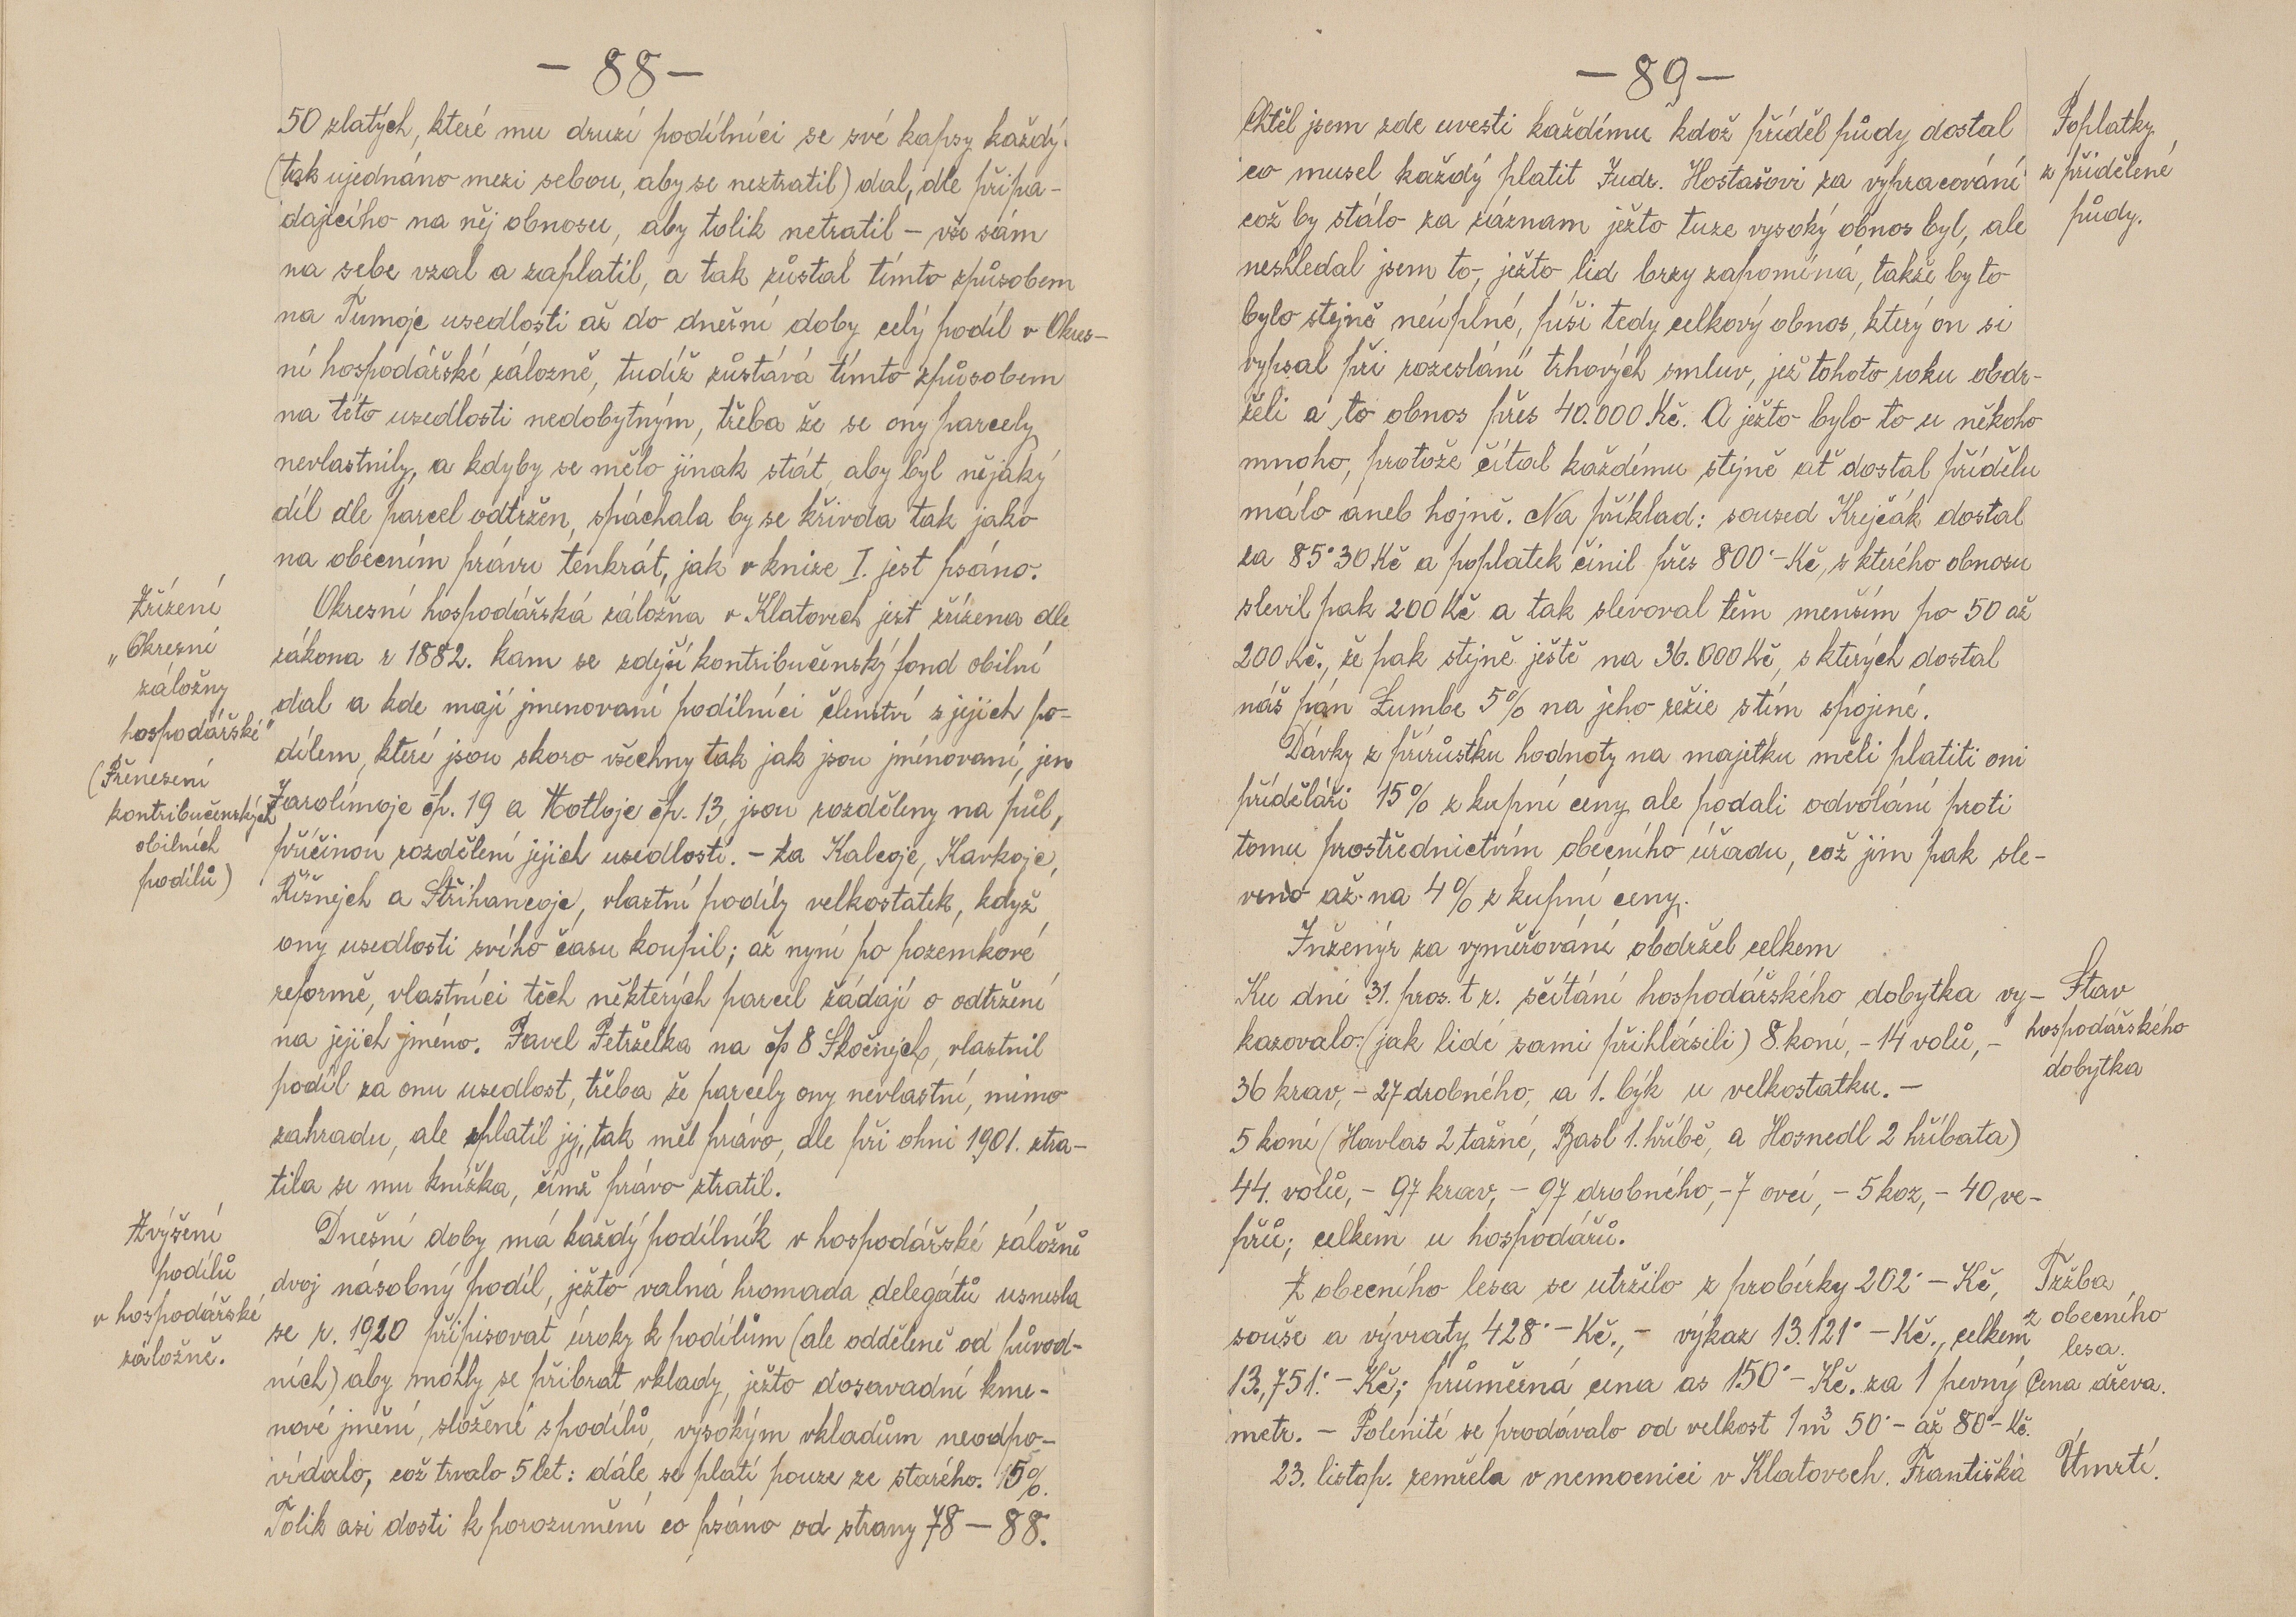 — 88 —
50 zlatých, které mu druzí podílníci se své kapsy každý
(tak ujednáno mezi sebou, aby se neztratil) dal, dle připa-
dajícího na něj obnosu, aby tolik netratil – vše sám
na sebe vzal a zaplatil, a tak zůstal tímto způsobem
na Tumoje usedlosti až do dnešní doby celý podíl v Okres-
ní hospodářské záložně, tudíž zůstává tímto způsobem
na této usedlosti nedobytným, třeba že se ony parcely
nevlastnily, a kdyby se mělo jinak stát, aby byl nějaký
díl dle parcel odtržen, spáchala by se křivda tak jako
na obecním právu tenkrát, jak v knize I. jest psáno.
Zřízení
„Okresní
záložny
hospodářské"
(Přenesení
kontribučenských
obilních
podílů)
Okresní hospodářská záložna v Klatovech jest zřízena dle
zákona r 1882. kam se zdejší kontribučenský fond obilní
dal a kde mají jmenovaní podílníci členství s jejich po-
dílem, které jsou skoro všechny tak jak jsou jménovaní, jen
Jarolímoje čp. 19 a Hotloje čp. 13, jsou rozděleny na půl,
příčinou rozdělení jejich usedlostí. – Za Kalcoje, Kavkoje,
Říšnejch a Střihancoje, vlastní podíly velkostatek, když
ony usedlosti svého času koupil; až nyní po pozemkové
reformě, vlastníci těch některých parcel žádají o odtržení
na jejich jméno. Pavel Petrželka na čp 8 Skočnejch, vlastnil
podíl za onu usedlost, třeba že parcely ony nevlastní, mimo
zahradu, ale platil jej, tak měl právo, ale při ohni 1901. ztra-
tila se mu knížka, čímž právo ztratil.
Zvýšení
podílů
v hospodářské
záložně.
Dnešní doby má každý podílník v hospodářské záložně
dvoj násobný podíl, ježto valná hromada delegátů usnesla
se r. 1920 připisovat úroky k podílům (ale odděleně od původ-
ních) aby mohly se přibrat vklady, ježto dosavadní kme-
nové jmění, složené s podílů, vysokým vkladům neodpo-
vídalo, což trvalo 5 let: dále se platí pouze ze starého. 15%.
Tolik asi dosti k porozumění co psáno od strany 78 — 88.
— 89 —
Chtěl jsem zde uvesti každímu kdož příděl půdy dostal
co musel každý platit Judr. Hostašovi za vypracování
což by stálo za záznam ježto tuze vysoký obnos byl, ale
neshledal jsem to, ježto lid brzy zapomíná, takže by to
bylo stejně neúplné, píši tedy celkový obnos, který on si
vypsal při rozeslání trhových smluv, jež tohoto roku obdr-
želi a to obnos přes 40.000 Kč. A ježto bylo to u někoho
mnoho, protože čítal každému stejně ať dostal přídělu
málo aneb hojně. Na příklad: soused Krejčák dostal
za 85·30 Kč a poplatek činil přes 800·– Kč, s kterého obnosu
slevil pak 200 Kč a tak slevoval těm menším po 50 až
200 Kč., že pak stejně ještě na 36.000 Kč, s kterých dostal
náš pán Lumbe 5% na jeho režie s tím spojené.
Poplatky
z přidělené
půdy.
Dávky z přírůstku hodnoty na majetku měli platiti oni
příděláři 15% z kupní ceny ale podali odvolání proti
tomu prostřednictvím obecního úřadu, což jim pak sle-
veno až na 4% z kupní ceny.
Inženýr za vyměřování obdržel celkem
Ku dni 31. pros. t r. sčítání hospodářského dobytka vy-
kazovalo: (jak lidé sami přihlásili) 8. koní, – 14 volů, –
36 krav, – 27 drobného, a 1. býk u velkostatku. –
5 koní (Havlas 2 tažné, Basl 1. hříbě, a Hosnedl 2 hříbata)
44. volů, – 97 krav, – 97 drobného, – 7 ovcí, – 5 koz, – 40 ve-
přů; celkem u hospodářů.
Stav
hospodářského
dobytka
Z obecního lesa se utržilo z probírky 202·— Kč,
souše a vývraty 428·— Kč., – výkaz 13.121·— Kč., celkem
13.,751·— Kč; průměrná cena as 150·— Kč. za 1 pevný
metr. – Polenité se prodávalo od velkost 1 m³ 50·– až 80·– Kč.
Tržba
z obecního
lesa.
Cena dřeva.
23. listop. zemřela v nemocnici v Klatovech. Františka
Úmrtí.